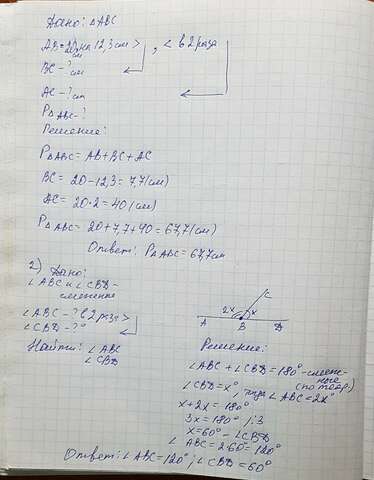 Дано: △ABC
AB = 20 см на 12,3 см >, < в 2 раза
BC - ? см
AC - ? см
P△ABC - ?
Решение:
P△ABC = AB + BC + AC
BC = 20 - 12,3 = 7,7 (см)
AC = 20 · 2 = 40 (см)
P△ABC = 20 + 7,7 + 40 = 67,7 (см)
Ответ: P△ABC = 67,7 см
2) Дано:
∠ABC и ∠CBD -
смежные
∠ABC - ? в 2 раза >
∠CBD - ?°
Найти: ∠ABC
∠CBD
C
2x x
A B D
Решение:
∠ABC + ∠CBD = 180° - смеж-
ные
(по теор.)
∠CBD = x°, тогда ∠ABC = 2x°
x + 2x = 180°
3x = 180° /:3
x = 60° - ∠CBD
∠ABC = 2·60° = 120°
Ответ: ∠ABC = 120°; ∠CBD = 60°